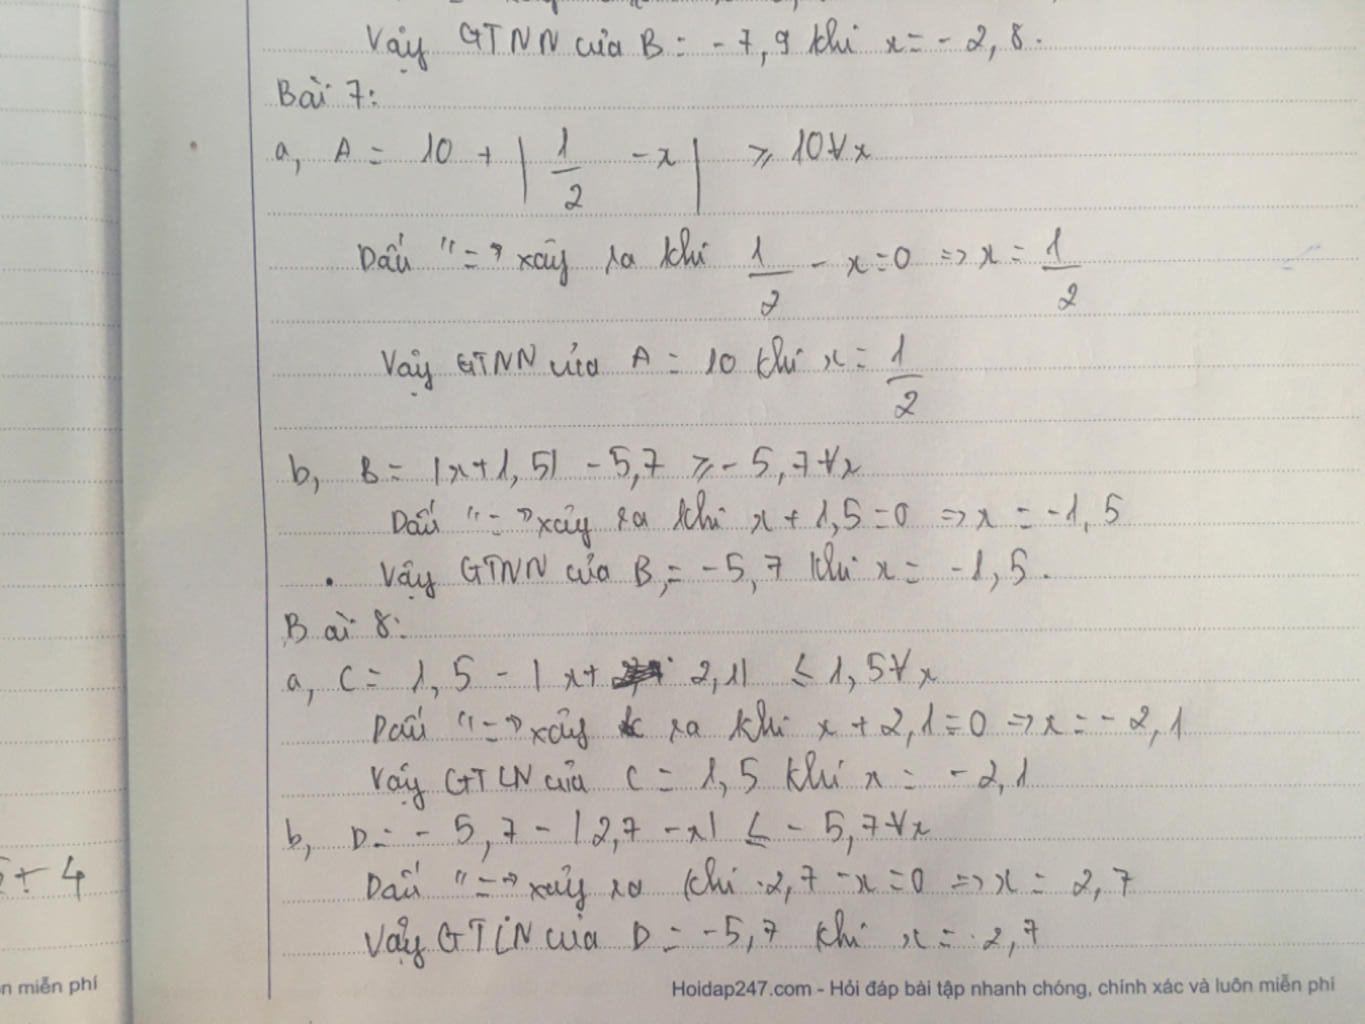 Vậy GTNN của B = -7,9 khi x = -2,8.
Bài 7:
a, A = 10 + | 1/2 - x | ≥ 10 ∀x
Dấu "=" xảy ra khi 1/2 - x = 0 => x = 1/2
Vậy GTNN của A = 10 khi x = 1/2
b, B = |x + 1,5| - 5,7 ≥ - 5,7 ∀x
Dấu "=" xảy ra khi x + 1,5 = 0 => x = -1,5
Vậy GTNN của B = -5,7 khi x = -1,5.
Bài 8:
a, C = 1,5 - |x + 2,1| ≤ 1,5 ∀x
Dấu "=" xảy ra khi x + 2,1 = 0 => x = -2,1
Vậy GTLN của C = 1,5 khi x = -2,1
b, D = - 5,7 - |2,7 - x| ≤ - 5,7 ∀x
+ 4
Dấu "=" xảy ra khi 2,7 - x = 0 => x = 2,7
Vậy GTLN của D = -5,7 khi x = 2,7
n miễn phí
Hoidap247.com - Hỏi đáp bài tập nhanh chóng, chính xác và luôn miễn phí